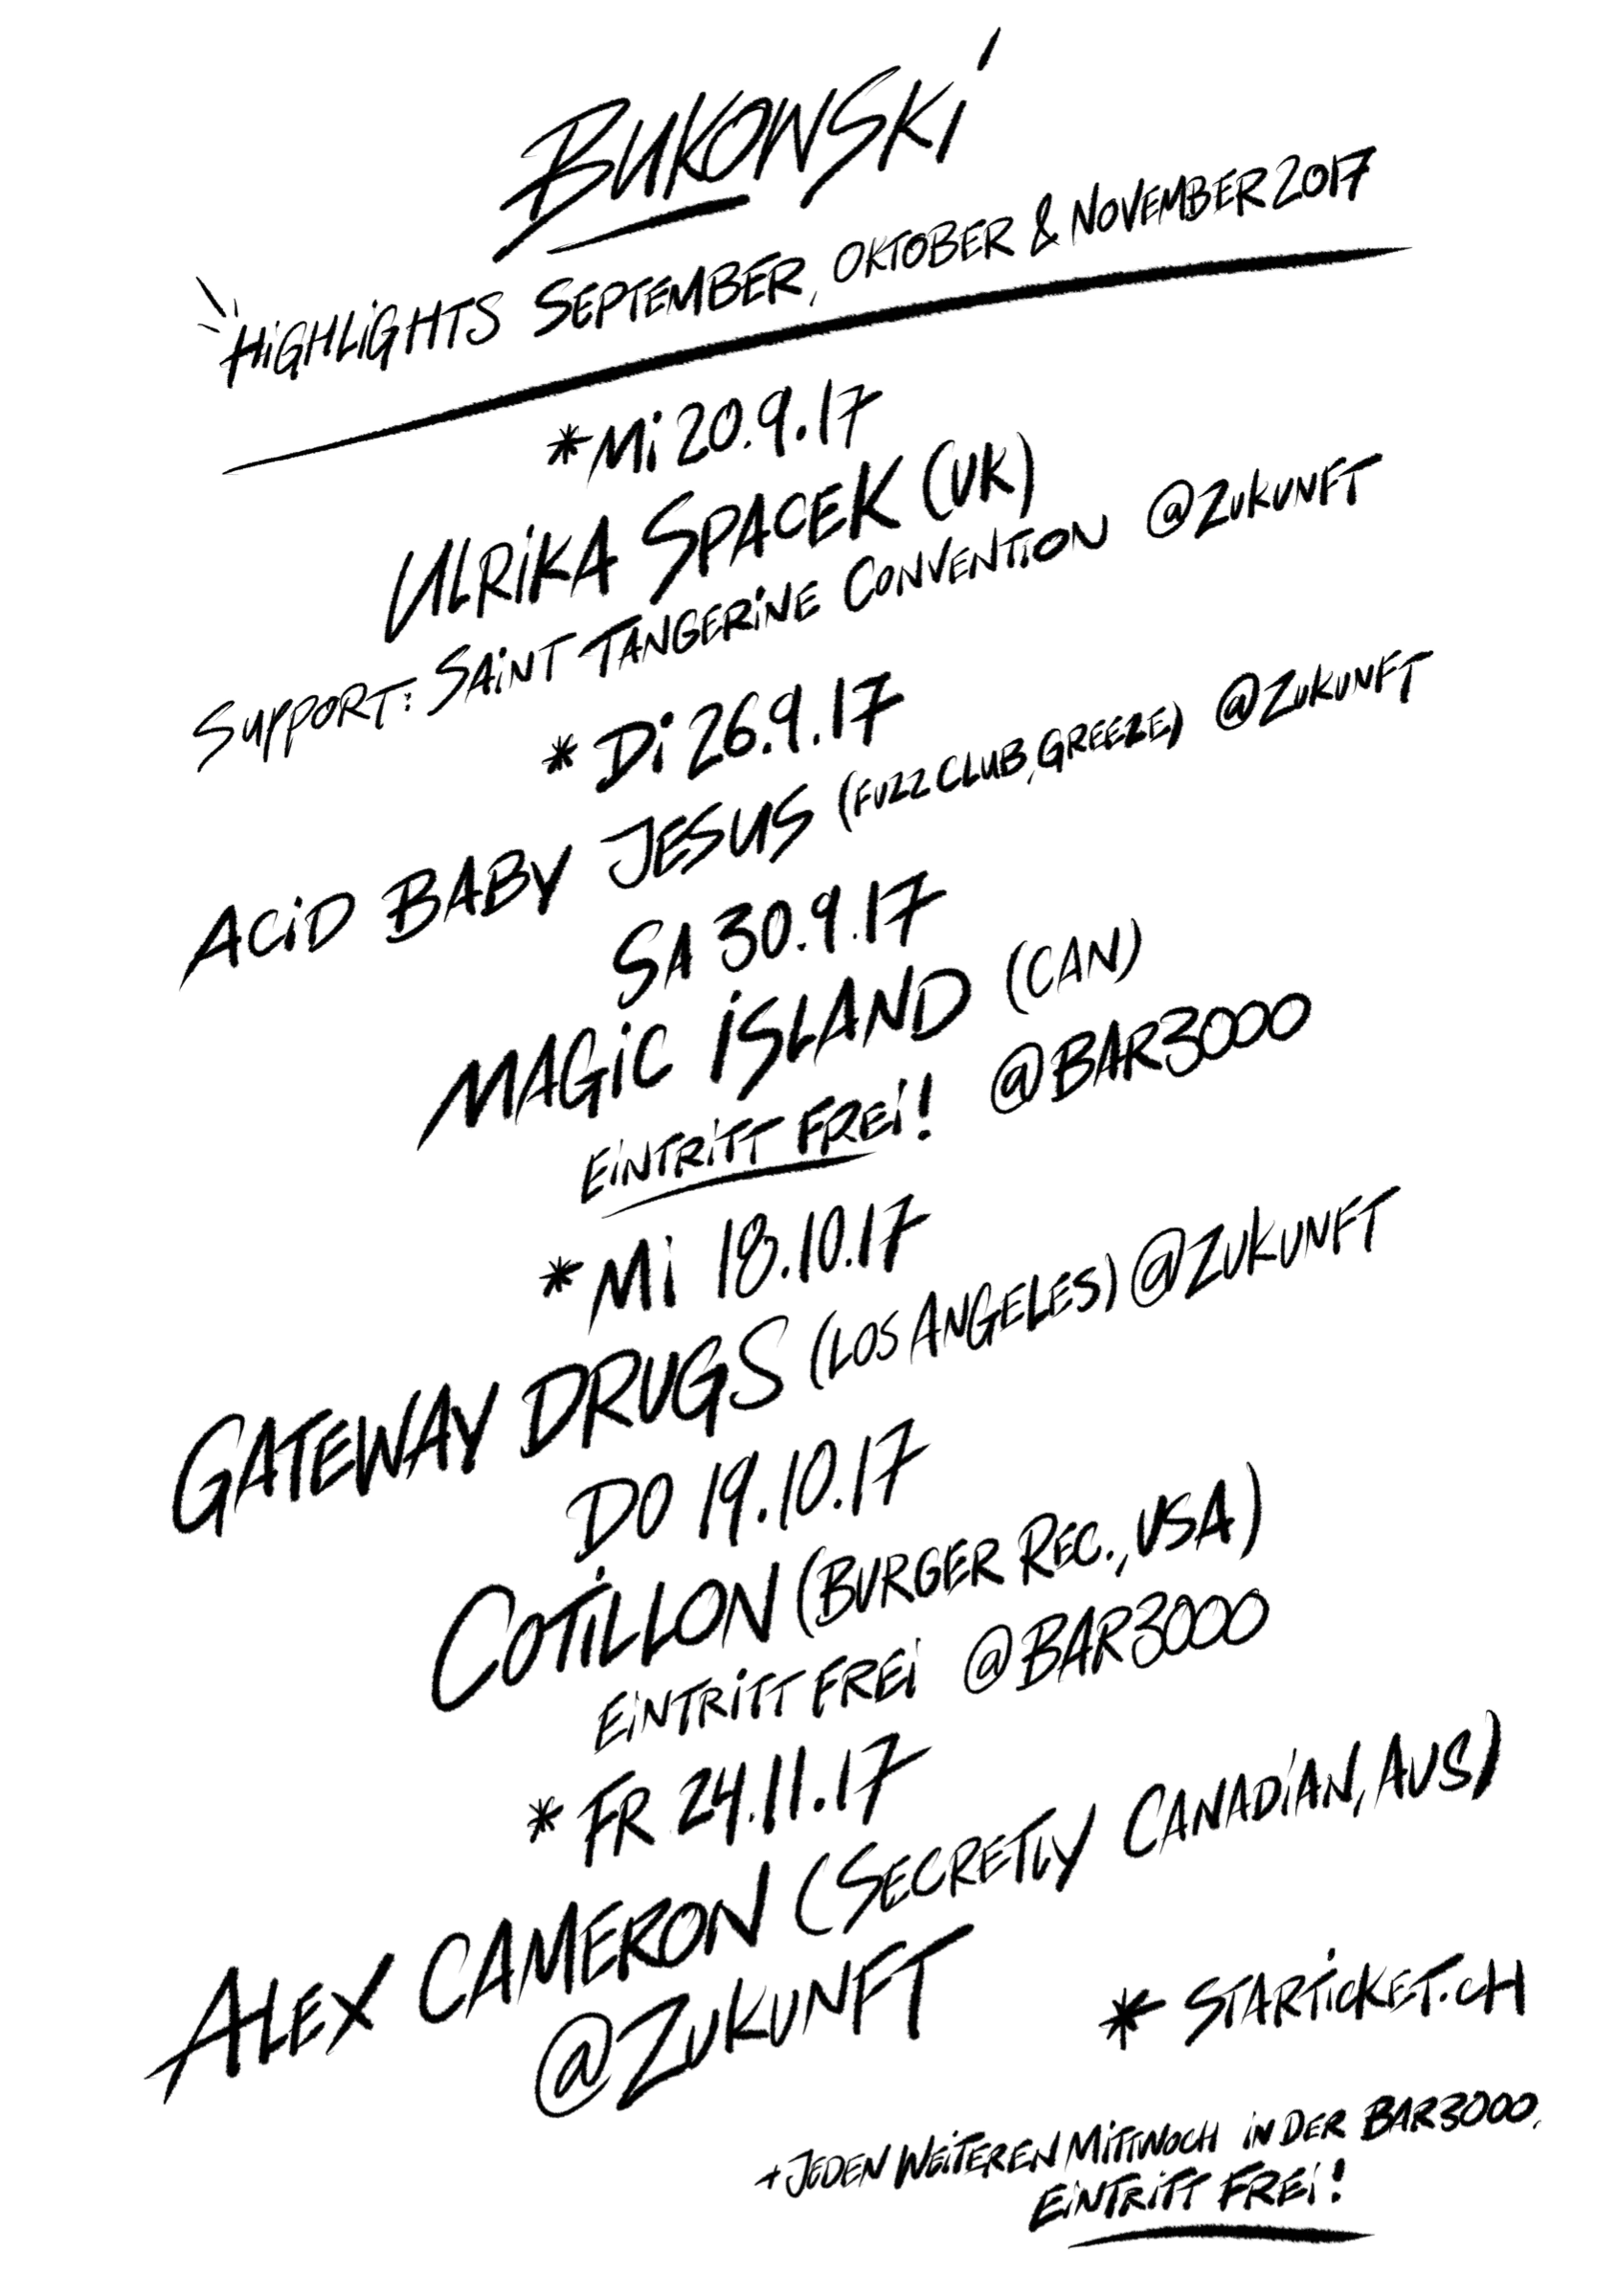 BUKOWSKI
HIGHLIGHTS SEPTEMBER, OKTOBER & NOVEMBER 2017
*Mi 20.9.17
ULRIKA SPACEK (UK)
SUPPORT: SAINT TANGERINE CONVENTION @ZUKUNFT
* Di 26.9.17
ACID BABY JESUS (FUZZ CLUB, GREEZE) @ZUKUNFT
SA 30.9.17
MAGIC ISLAND (CAN)
EINTRITT FREI! @BAR3000
*Mi 18.10.17
GATEWAY DRUGS (LOS ANGELES) @ZUKUNFT
DO 19.10.17
COTILLON (BURGER REC., USA)
EINTRITT FREI @BAR3000
* FR 24.11.17
ALEX CAMERON (SECRETLY CANADIAN, AUS)
@ZUKUNFT
* STARTICKET.CH
+ JEDEN WEITEREN MITTWOCH IN DER BAR3000,
EINTRITT FREI!